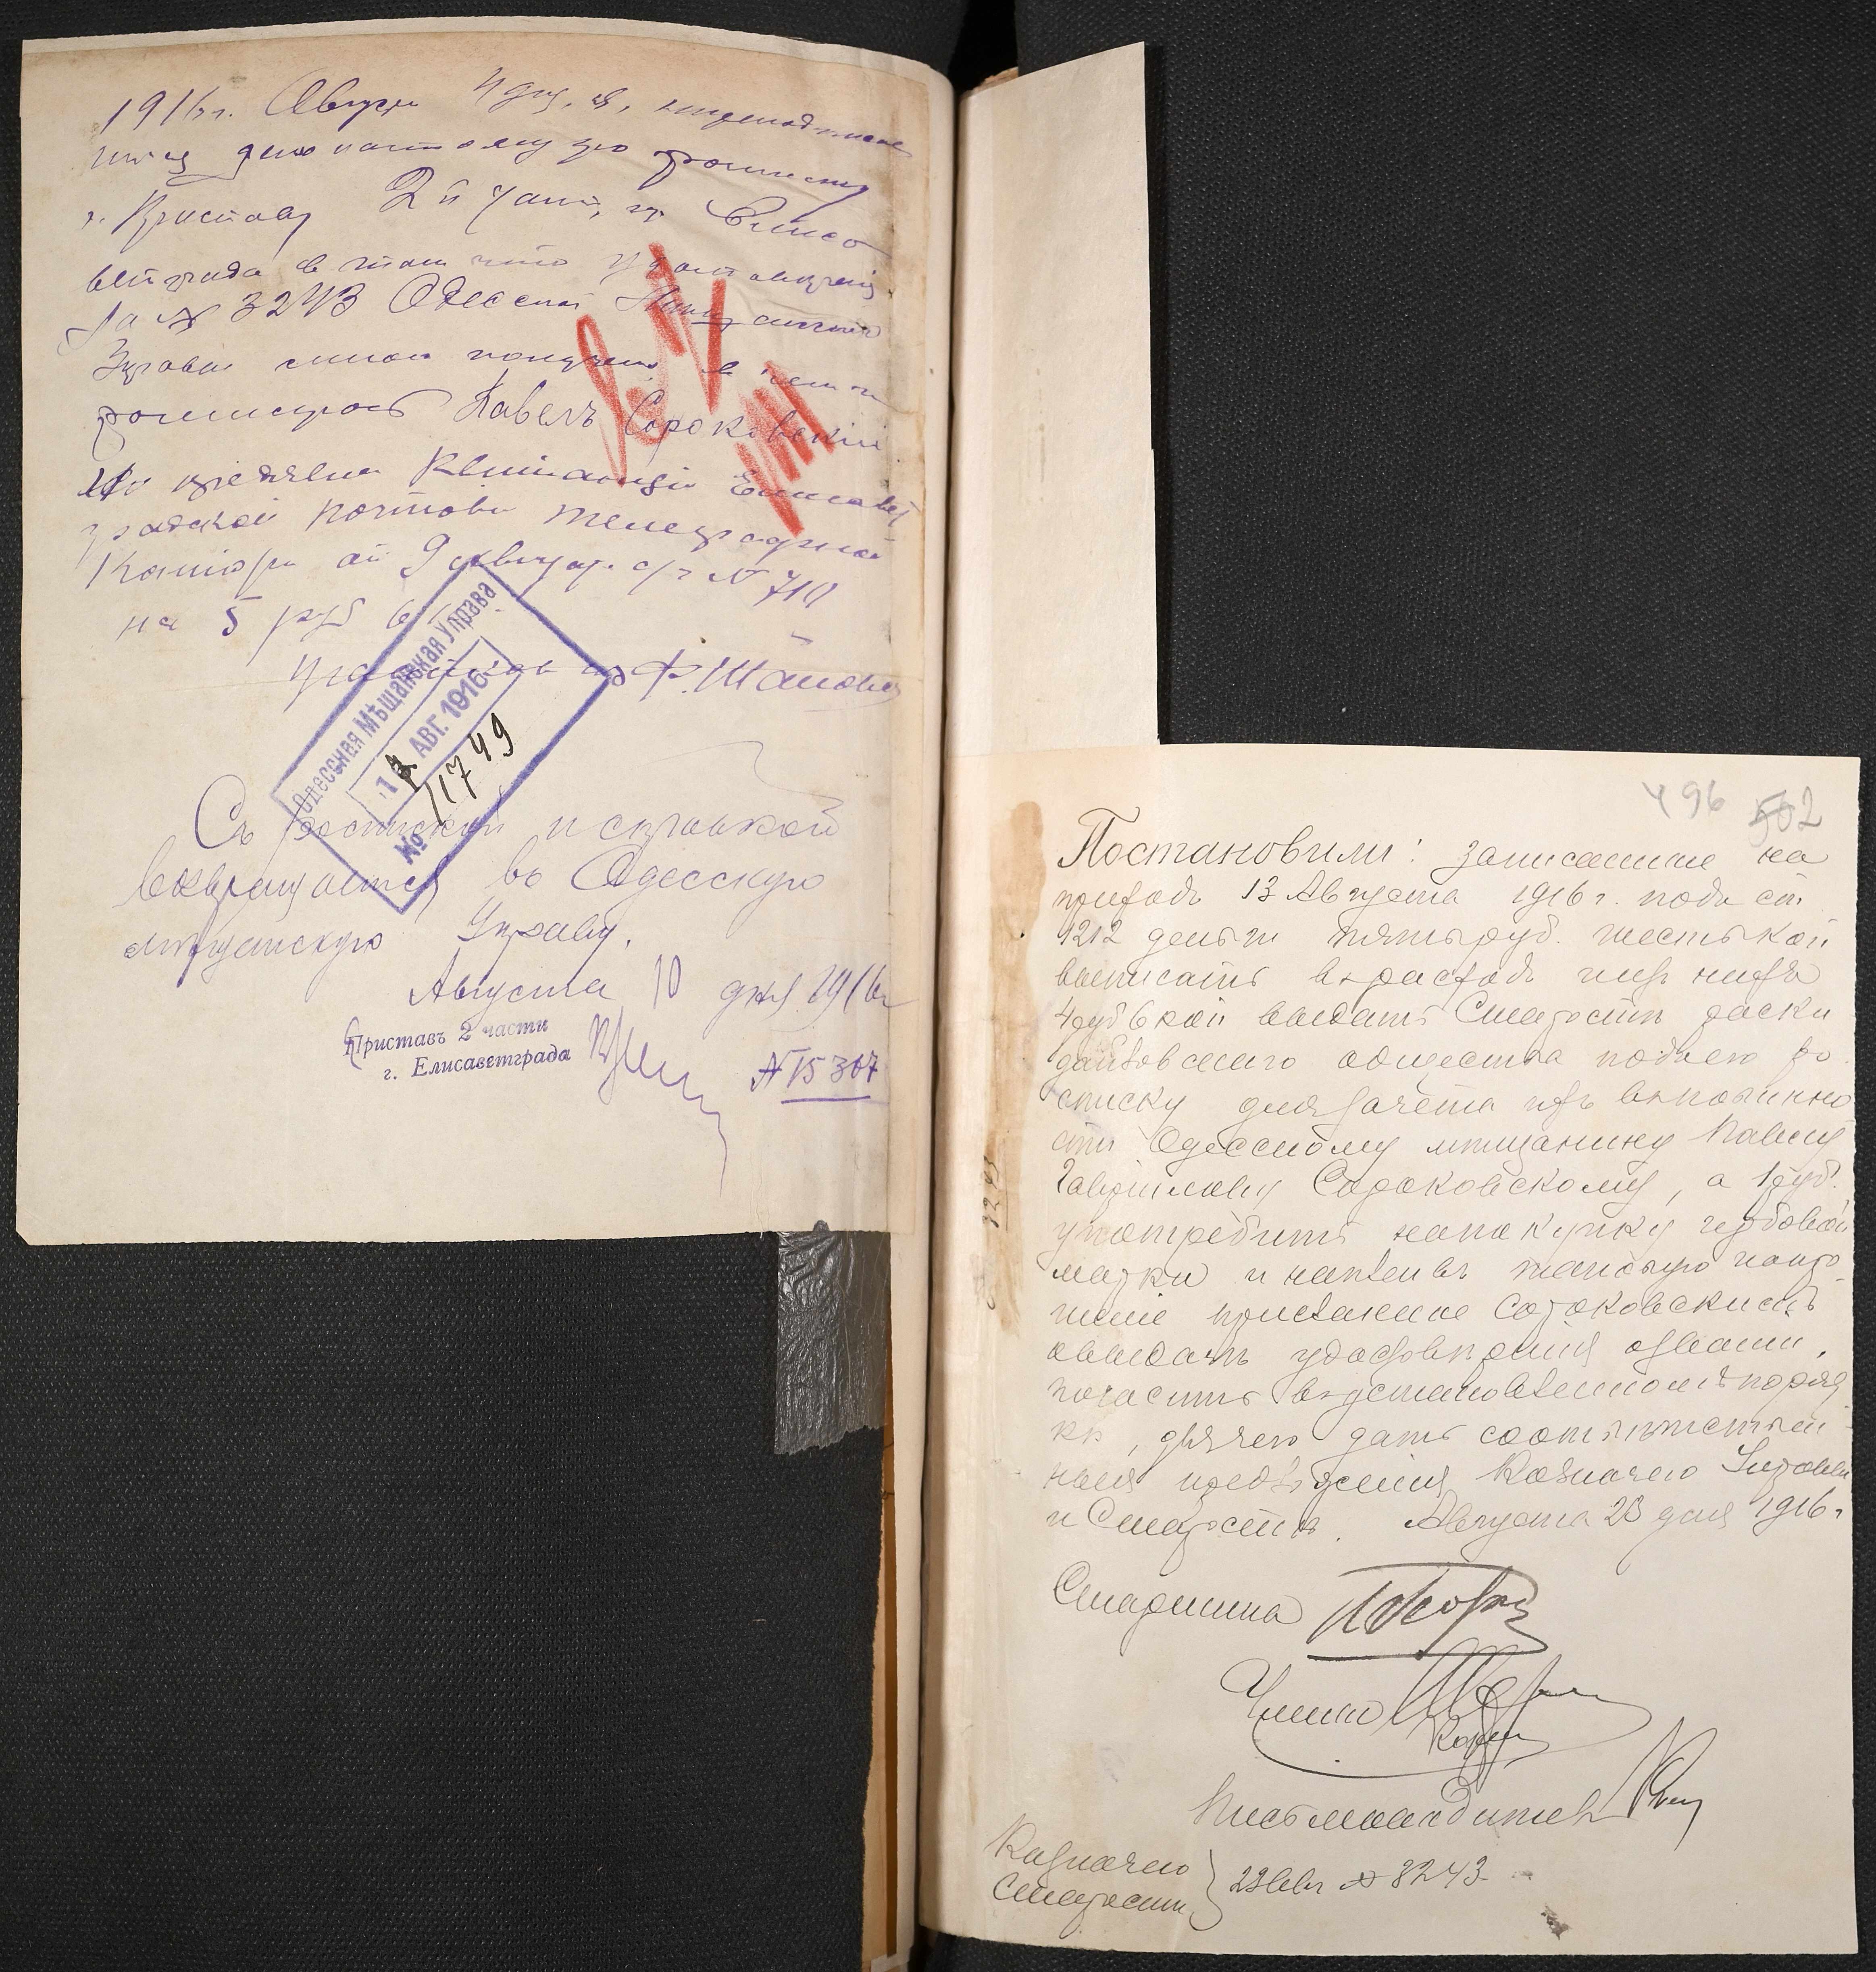 1916 г. Августа 9 дня, я, нижеподписав
шійся даю настоящую росписку
г. Приставу 2й части, гор. Елисо
ветграда в том что удостовереніе
За № 3243 Одесской Мещанской
Управы мною получено в чем и
росписуюсь Павелъ Сороковскій
При предявлена Квитанція Елисавет
градской почтово телеграфной
Конторы от 9 Августа с/г №
на 5 руб 6
Одесская Мѣщанская Управа
АВГ. 1916
№ 11749
Съ роспиской и справкой
возвращается въ Одесскую
мѣщанскую Управу.
Августа 10 дня 1916 г
Приставъ 2 части
г. Елисаветграда
№ 15307
496 502
Постановили: записанные на
приходъ 13 Августа 1916 г. подъ ст.
1212 деньги пять руб. шесть коп
выписать въ расходъ изъ нихъ
4 руб 6 коп выдать Старостѣ
общества подъ его ро
списку для зачета въ повинно
сти Одесскому мѣщанину Павлу
Гаврилову Сороковскому, а 1 руб.
употребить на покупку гербовой
марки и наклеивъ таковую на про
шеніе присланное Сороковскимъ
о выдачѣ удостовѣренія о званіи,
погасить въ установленномъ поряд
кѣ, для чего дать соотвѣтствен
ныя предложенія Казначею Управы
и Старостѣ. Августа 23 дня 1916 г
Старшина
Члены
Письмоводитель
Казначею
Старостѣ } 23 Авг № 3243